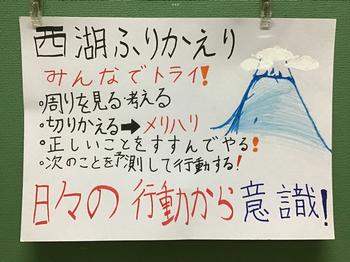 西湖ふりかえり
みんなでトライ!
・周りを見る・考える
・切りかえる➡メリハリ
・正しいことをすすんでやる!
・次のことを予測して行動する!
日々の行動から意識!